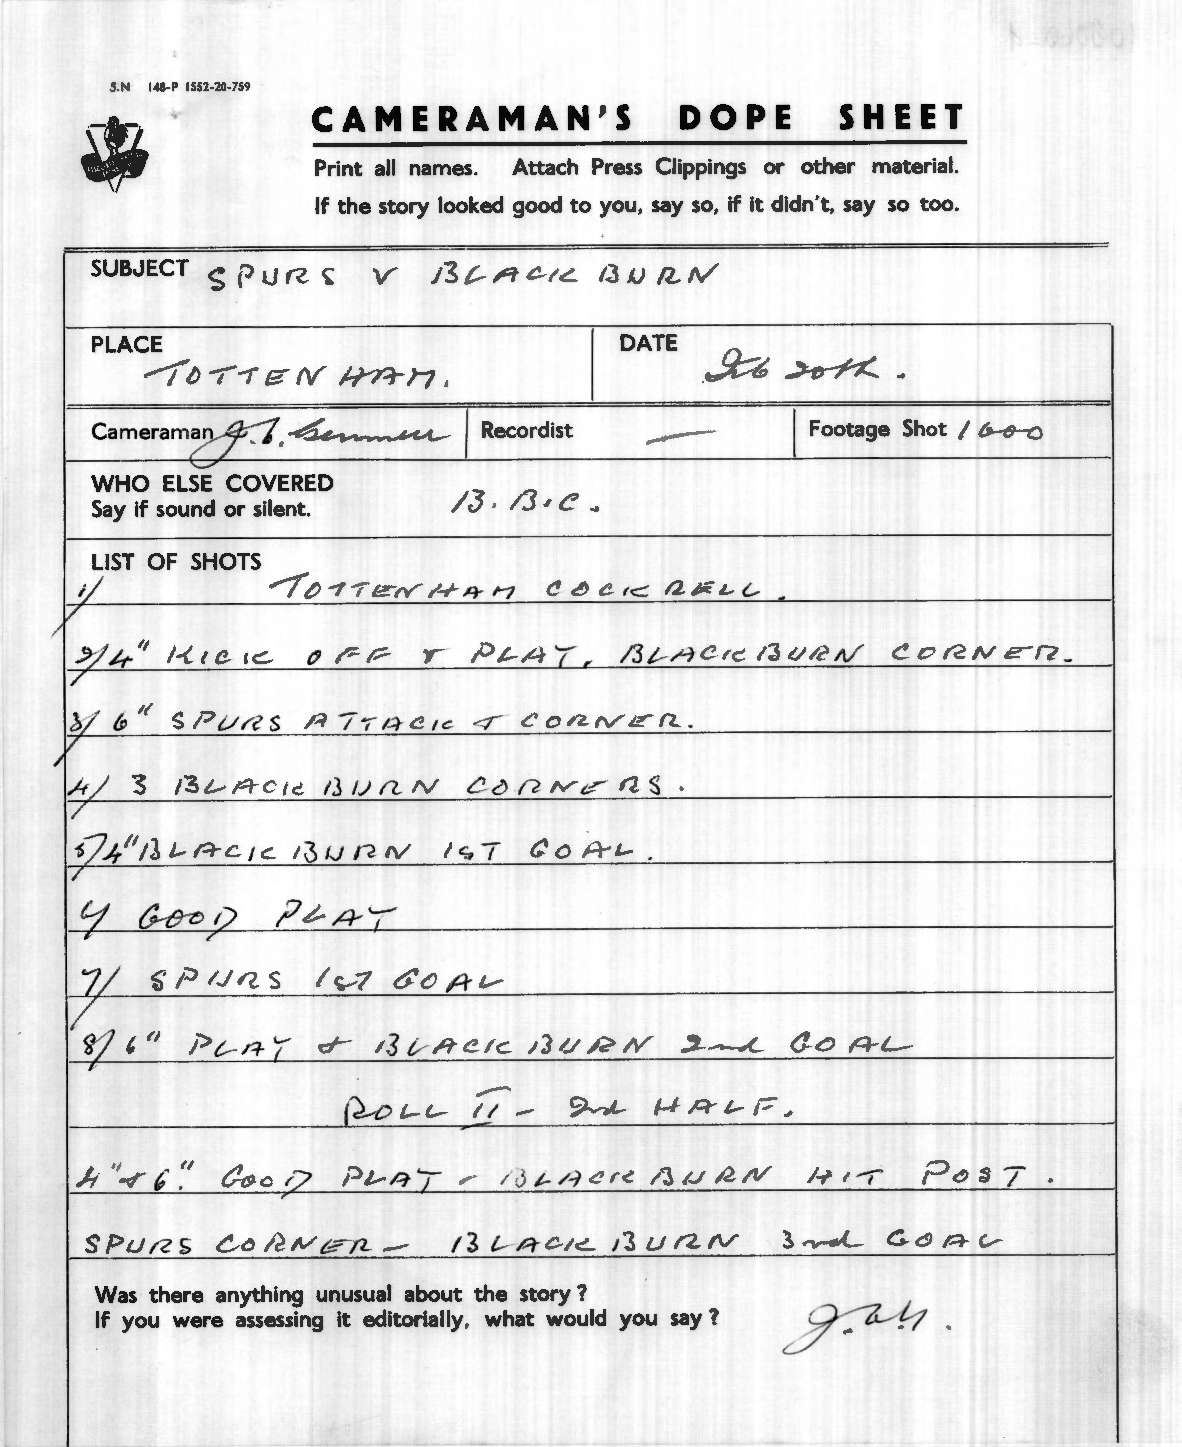 S.N 148-P 1552-20-759
CAMERAMAN'S DOPE SHEET
Print all names. Attach Press Clippings or other material.
If the story looked good to you, say so, if it didn't, say so too.
SUBJECT SPURS V BLACKBURN
PLACE TOTTENHAM.
DATE Feb 20th.
Cameraman J.
Recordist —
Footage Shot 1600
WHO ELSE COVERED
Say if sound or silent.
B.B.C.
LIST OF SHOTS
1/ TOTTENHAM COCKRELL.
2/ 4" KICK OFF & PLAY, BLACKBURN CORNER.
3/ 6" SPURS ATTACK & CORNER.
4/ 3 BLACKBURN CORNERS.
5/ 4" BLACKBURN 1ST GOAL.
GOOD PLAY
7/ SPURS 1ST GOAL
8/ 6" PLAY & BLACKBURN 2nd GOAL
ROLL II – 2nd HALF.
4" & 6". GOOD PLAY – BLACKBURN HIT POST.
SPURS CORNER – BLACKBURN 3rd GOAL
Was there anything unusual about the story?
If you were assessing it editorially, what would you say?